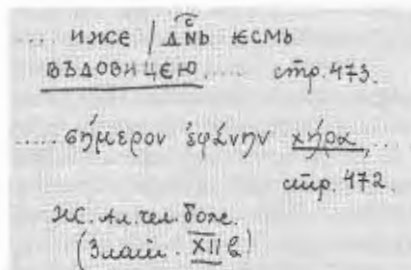 .... иже / дн҃ь ѥсмь
въдовицєю ..... стр. 473.
..... σήμερον ἐφάνην χήρα, ...
стр. 472.
Ж. Ал. чел. бож.
(Злат. XII в)